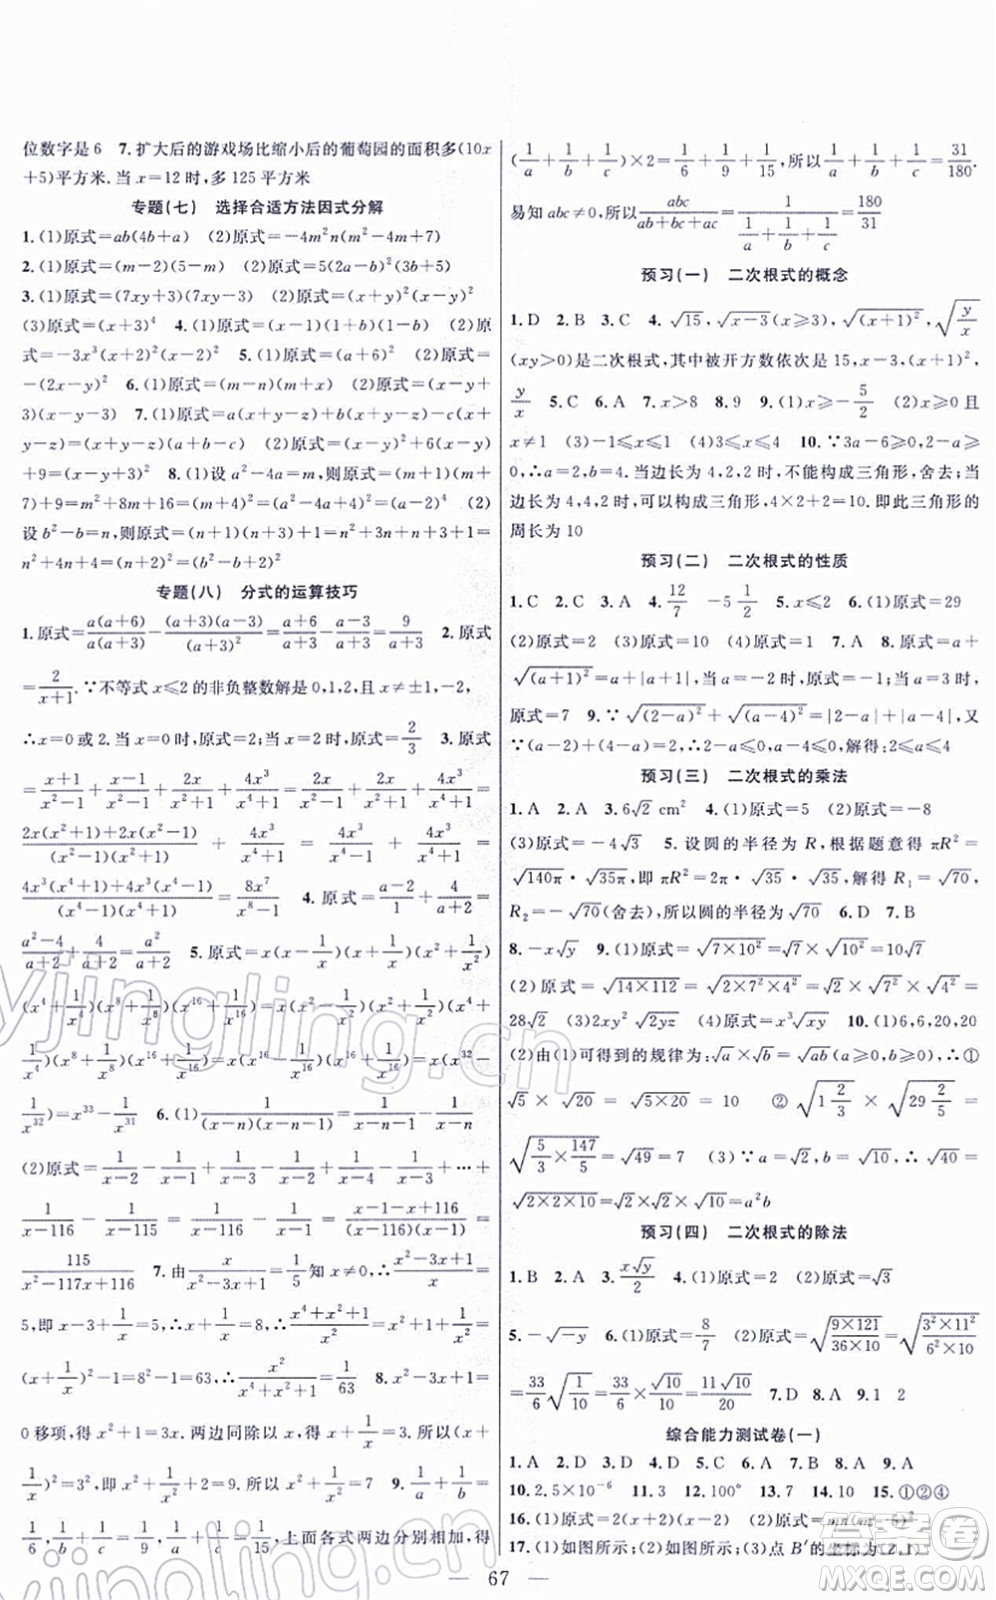 位数字是6　7. 扩大后的游戏场比缩小后的葡萄园的面积多(10x
+5)平方米. 当 x=12 时, 多 125 平方米
专题(七)　选择合适方法因式分解
1. (1)原式=ab(4b+a)　(2)原式=-4m²n(m²-4m+7)
2. (1)原式=(m-2)(5-m)　(2)原式=5(2a-b)(a-5b)
3. (1)原式=(7xy+3)(7xy-3)　(2)原式=(x+y)²(x-y)²
(3)原式=(x+3)⁴　4. (1)原式=(x-1)(1+b)(1-b)　(2)原
式=-3x³(x+2)²(x-2)²　5. (1)原式=(a+6)²　(2)原式=
-(2x-y)²　6. (1)原式=(m-n)(m+n)　(2)原式=(x+
3)(x+3)　7. (1)原式=a(x+y-z)+b(x+y-z)-c(x+
y-z)=(x+y-z)(a+b-c)　(2)原式=(x+y)²-6(x+y)
+9=(x+y-3)²　8. (1)设 a²-4a=m, 则原式=(m+1)(m+
7)+9=m²+8m+16=(m+4)²=(a²-4a+4)²=(a-2)⁴　(2)
设 b²-b=n, 则原式=(n+1)(n+3)+1=n²+3n+n+3+1=
n²+4n+4=(n+2)²=(b²-b+2)²
专题(八)　分式的运算技巧
1. 原式=a(a+6)/a(a+3)-(a+3)(a-3)/(a+3)²=(a+6)/(a+3)-(a-3)/(a+3)=9/(a+3)　2. 原式
=2/(x+1). ∵不等式 x≤2 的非负整数解是 0,1,2, 且 x≠±1,-2,
∴x=0 或 2. 当 x=0 时, 原式=2; 当 x=2 时, 原式=2/3　3. 原式
=(x+1)/(x²-1)+(x-1)/(x²-1)+2x/(x²+1)+4x³/(x⁴+1)=2x/(x²-1)+2x/(x²+1)+4x³/(x⁴+1)=
(2x(x²+1)+2x(x²-1))/((x²-1)(x²+1))+4x³/(x⁴+1)=4x³/(x⁴-1)+4x³/(x⁴+1)=
(4x³(x⁴+1)+4x³(x⁴-1))/((x⁴-1)(x⁴+1))=8x⁷/(x⁸-1)　4. 原式=(a-2)/1+4/(a+2)=
(a²-4)/(a+2)+4/(a+2)=a²/(a+2)　5. 原式=x(x-1/x)(x+1/x)(x²+1/x²)
(x⁴+1/x⁴)(x⁸+1/x⁸)(x¹⁶+1/x¹⁶)=x(x²-1/x²)(x²+1/x²)(x⁴+
1/x⁴)(x⁸+1/x⁸)(x¹⁶+1/x¹⁶)=x(x¹⁶-1/x¹⁶)(x¹⁶+1/x¹⁶)=x(x³²-
1/x³²)=x³³-1/x³¹　6. (1)1/((x-n)(x-n-1))=1/(x-n-1)-1/(x-n)
(2)原式=1/(x-2)-1/(x-1)+1/(x-3)-1/(x-2)+1/(x-4)-1/(x-3)+…+
1/(x-116)-1/(x-115)=1/(x-116)-1/(x-1)=(x-1-x+116)/((x-116)(x-1))=
115/(x²-117x+116)　7. 由 x/(x²-3x+1)=1/5 知 x≠0, ∴(x²-3x+1)/x=
5, 即 x-3+1/x=5, ∴x+1/x=8, ∴(x⁴+x²+1)/x²=x²+1+1/x²=
(x+1/x)²-1=8²-1=63, ∴x²/(x⁴+x²+1)=1/63　8. x²-3x+1=
0 移项, 得 x²+1=3x. 两边同除以 x, 得 x+1/x=3. 所以 (x+
1/x)²=x²+1/x²+2=9. 所以 x²+1/x²=7　9. 1/a+1/b=
1/6, 1/b+1/c=1/9, 1/a+1/c=1/15, 上面各式两边分别相加, 得
(1/a+1/b+1/c)×2=1/6+1/9+1/15, 所以 1/a+1/b+1/c=31/180.
易知 abc≠0, 所以 abc/(ab+bc+ac)=1/(1/a+1/b+1/c)=180/31
预习(一)　二次根式的概念
1. D　2. B　3. C　4. √15, √(x-3)(x≥3), √((x+1)²), √(y/x)
(xy>0)是二次根式, 其中被开方数依次是 15, x-3, (x+1)²,
y/x　5. C　6. A　7. x>8　8. 9　9. (1)x≥-5/2　(2)x≥0 且
x≠1　(3)-1≤x≤1　(4)3≤x≤4　10. ∵3a-6≥0, 2-a≥
0, ∴a=2, b=4. 当边长为 4,2,2 时, 不能构成三角形, 舍去; 当
边长为 4,4,2 时, 可以构成三角形, 4×2+2=10. 即此三角形的
周长为 10
预习(二)　二次根式的性质
1. C　2. C　3. A　4. 12/7　-5 1/2　5. x≤2　6. (1)原式=29
(2)原式=2　(3)原式=10　(4)原式=10　7. A　8. 原式=a+
√((a+1)²)=a+|a+1|, 当 a=-2 时, 原式=-1; 当 a=3 时,
原式=7　9. ∵√((2-a)²)+√((a-4)²)=|2-a|+|a-4|, 又
∵(a-2)+(4-a)=2, ∴2-a≤0, a-4≤0, 解得: 2≤a≤4
预习(三)　二次根式的乘法
1. A　2. A　3. 6√2 cm²　4. (1)原式=5　(2)原式=-8
(3)原式=-4√3　5. 设圆的半径为 R, 根据题意得 πR²=
√140π·√35π, 即 πR²=2π·√35·√35, 解得 R₁=√70,
R₂=-√70(舍去), 所以圆的半径为√70　6. D　7. B
8. -x√y　9. (1)原式=√(7×10²)=√7×√10²=10√7
(2)原式=√(14×112)=√(7×2×7×4²)=√7²×√2×√4²=
28√2　(3)2xy²√2yz　(4)原式=x³√xy　10. (1)6,6,20,20
(2)由(1)可得到的规律为: √a×√b=√ab(a≥0,b≥0) ∴①
√5×√20=√(5×20)=10　②√(1 2/3)×√(29 2/5)=
√(5/3×147/5)=√49=7　(3)∵a=√2, b=√10, ∴√40=
√(2×2×10)=√2×√2×√10=a²b
预习(四)　二次根式的除法
1. B　2. A　3. x√y/2　4. (1)原式=2　(2)原式=√3
5. -√-y　6. (1)原式=8/7　(2)原式=√(9×121/36×10)=√(3²×11²/6²×10)
=33/6√(1/10)=33/6×√10/10=11√10/20　7. D　8. A　9. 1　2
综合能力测试卷(一)
1. A　2. D　3. B　4. A　5. C　6. B　7. A　8. A　9. A
10. 2.5×10⁻⁶　11. 3　12. 100°　13. 7　14. 10　15. ①②④
16. (1)原式=2(x+2)(x-2)　(2)原式=
17. (1)如图所示; (2)如图所示; (3)点 B′的坐标为
67
答案圈
MXQE.COM
yjingling.cn
yjingling.cn